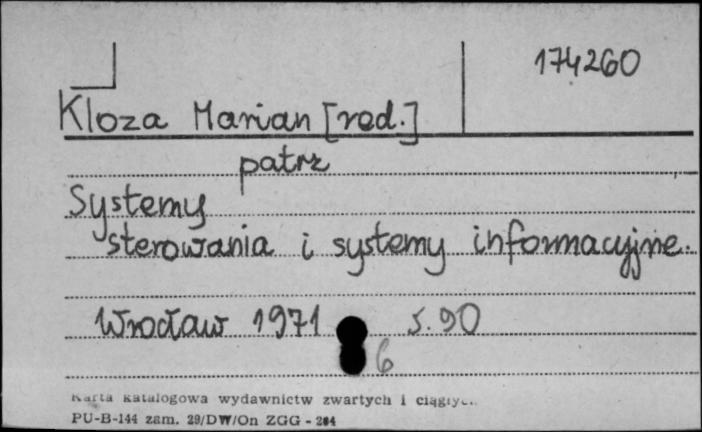 174260
Kloza Marian [red.]
patrz
Systemy
sterowania i systemy informacyjne.
Wrocław 1971 s. 90
6
Karta katalogowa wydawnictw zwartych i ciągłyc..
PU-B-144 zam. 29/DW/On ZGG - 284